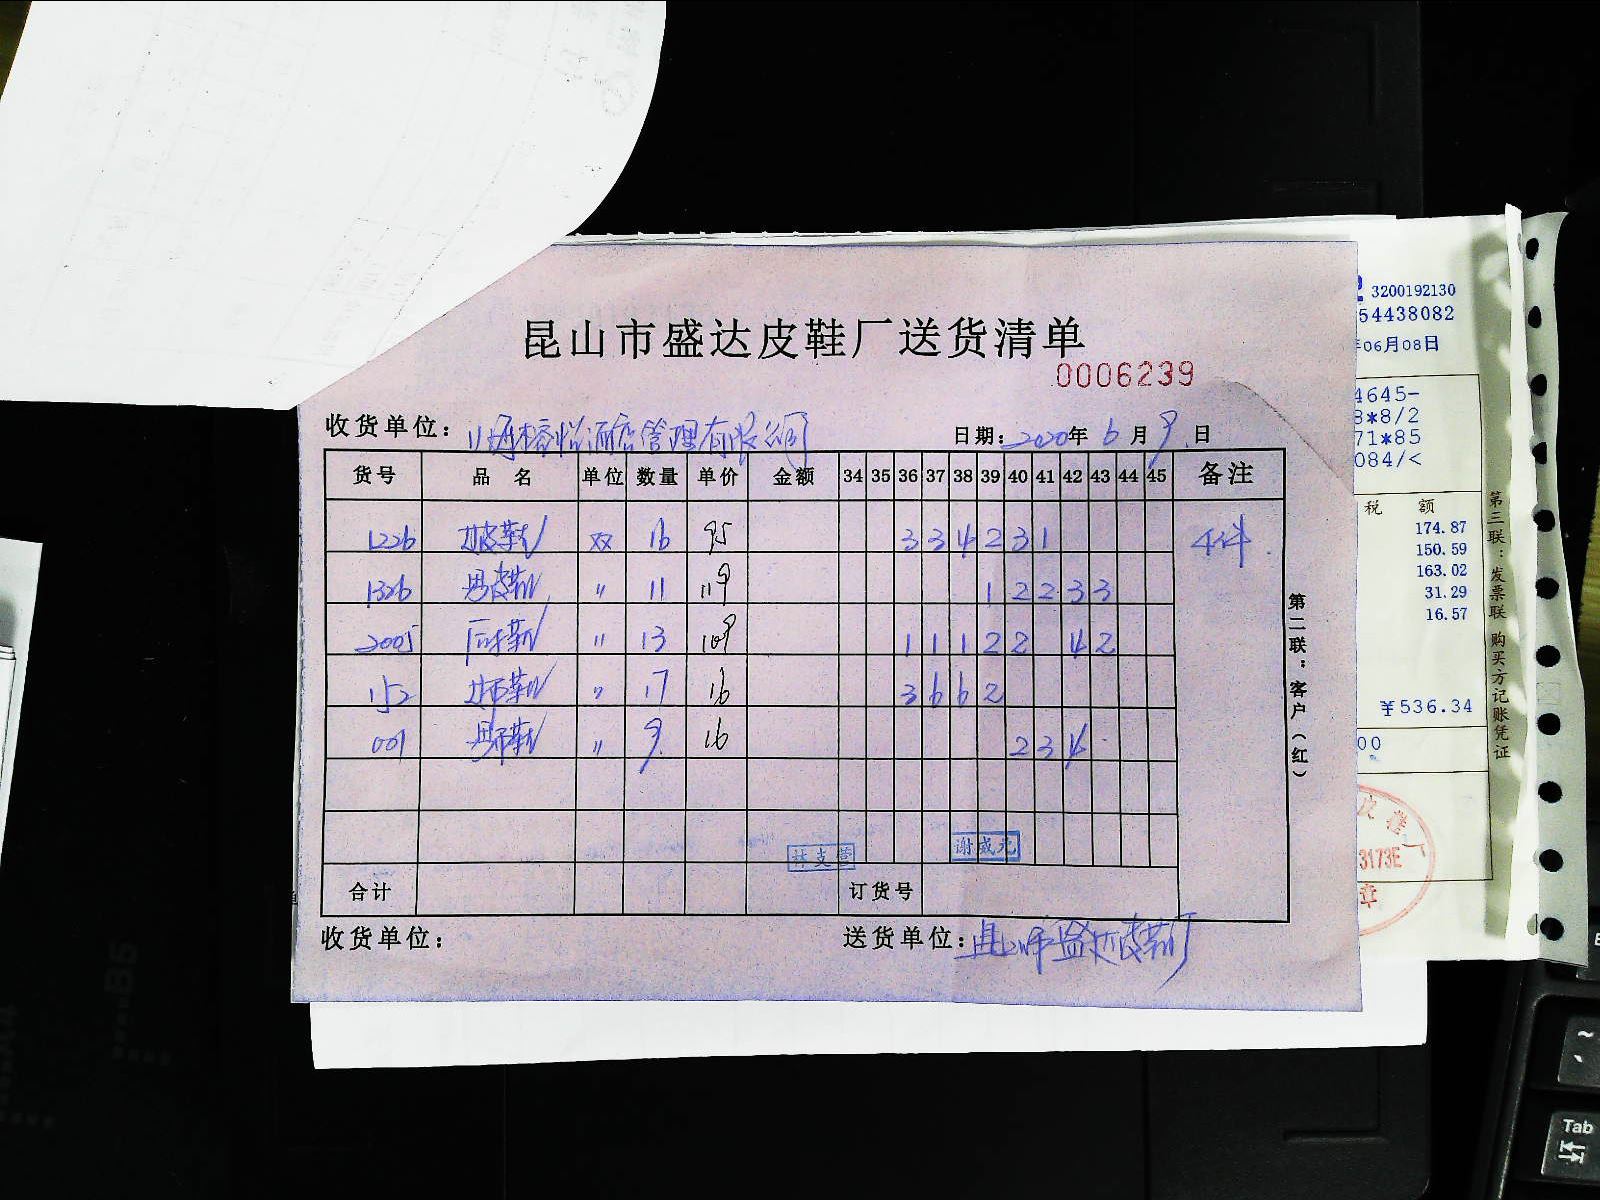 昆山市盛达皮鞋厂送货清单
0006239
收货单位：上海榕怡酒店管理有限公司 日期：2020年6月9日
货号 品名 单位 数量 单价 金额 34 35 36 37 38 39 40 41 42 43 44 45 备注
1226 女皮鞋 双 16 95 3 3 4 2 3 1 4件
1326 男皮鞋 〃 11 119 1 2 2 3 3
2005 厨师鞋 〃 13 109 1 1 1 2 2 4 2
152 女布鞋 〃 17 16 3 6 6 2
001 男布鞋 〃 9 16 2 3 4
林支营 谢威元
合计 订货号
收货单位： 送货单位：昆山市盛达皮鞋厂
第二联：客户（红）
3200192130
54438082
06月08日
4645-
8*8/2
71*85
084/<
税 额
174.87
150.59
163.02
31.29
16.57
¥536.34
00
3173E
章
第三联：发票联 购买方记账凭证
Tab